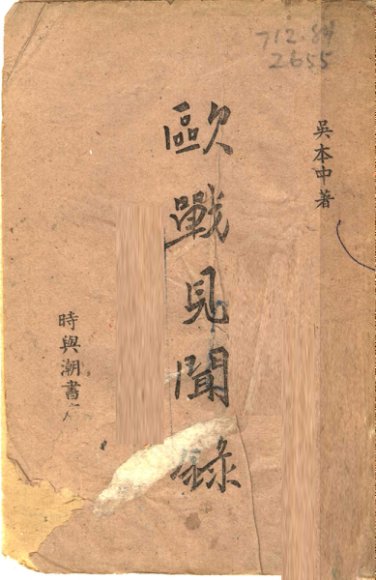 712.84
2655
吳本中著
歐戰見聞錄
時與潮書